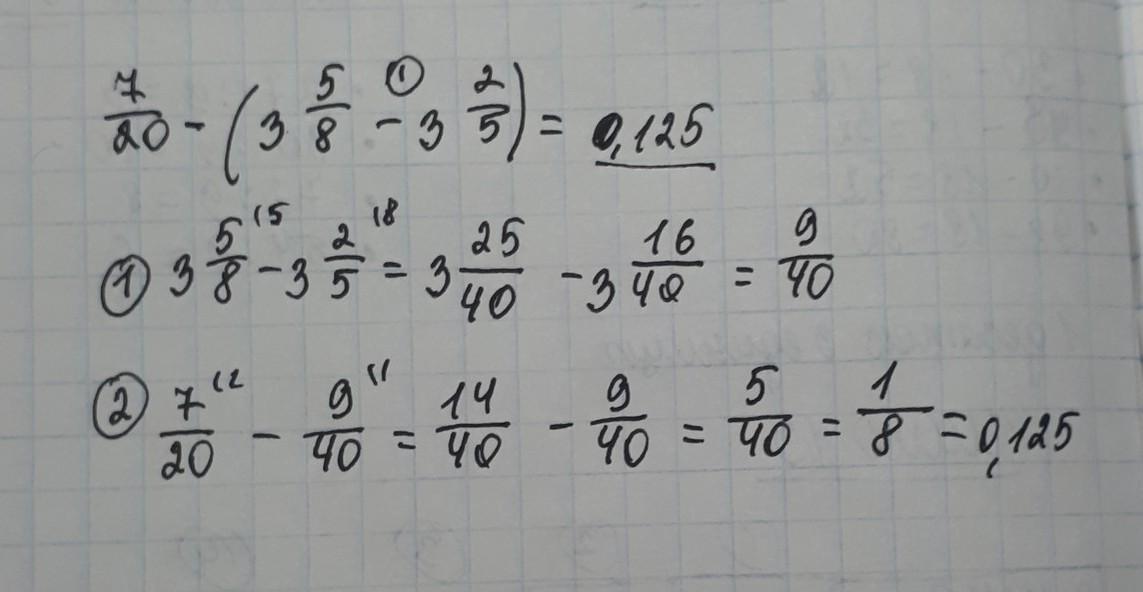 7/20 - (3 5/8 - ① 3 2/5) = 0,125
① 3 5/8 (5 - 3 2/5 (8 = 3 25/40 - 3 16/40 = 9/40
② 7/20 (2 - 9/40 (1 = 14/40 - 9/40 = 5/40 = 1/8 = 0,125